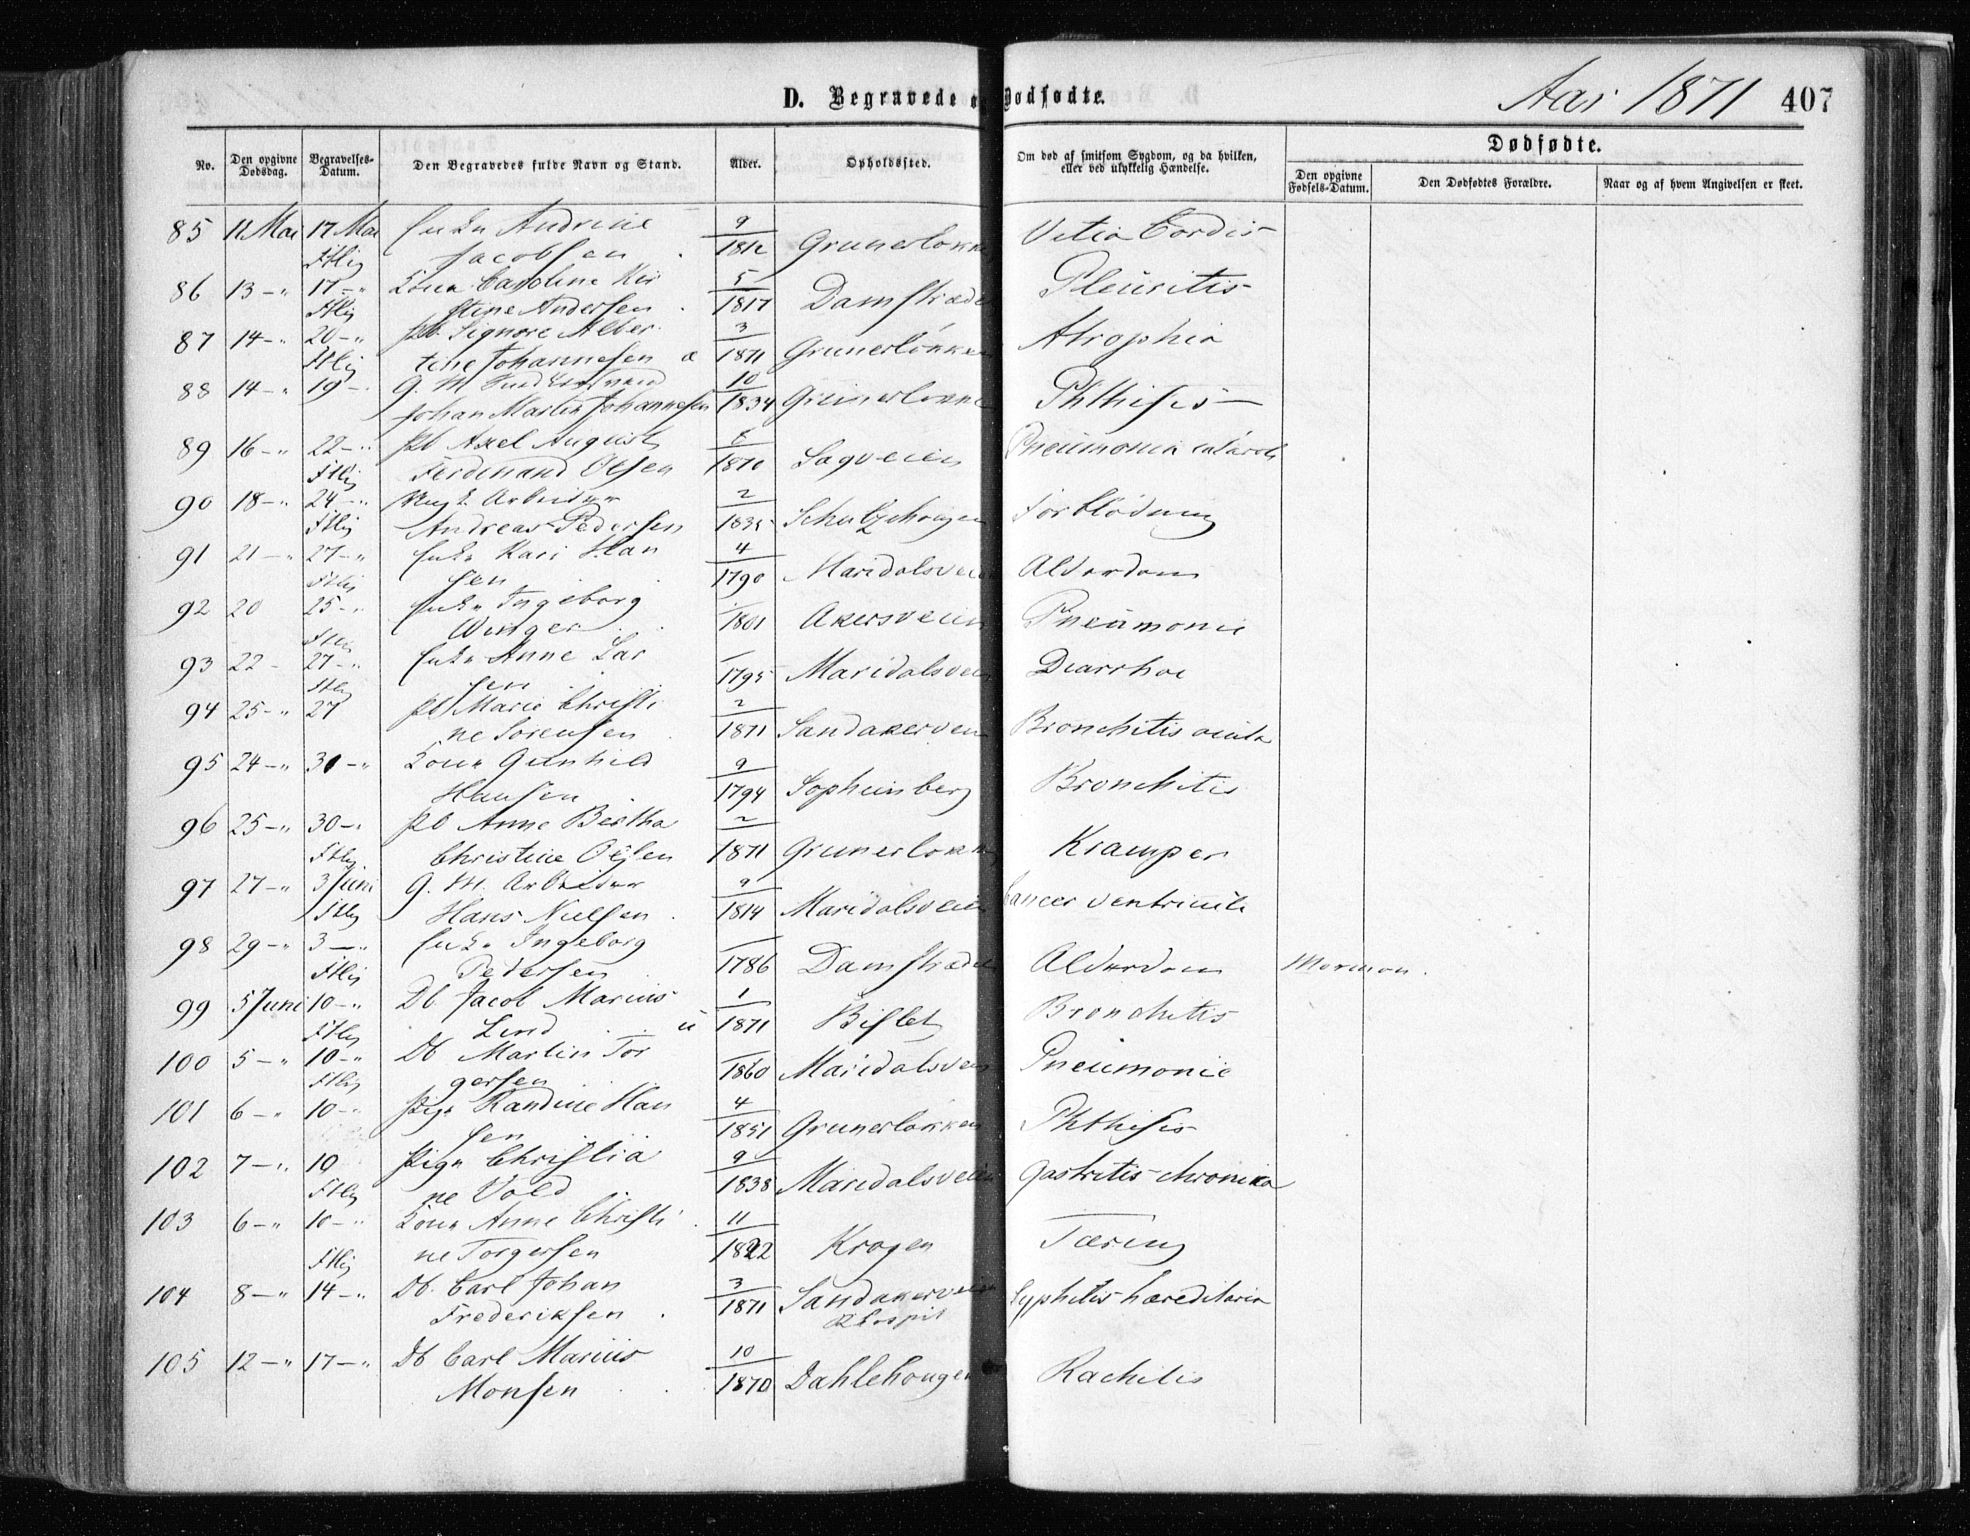 D. Begravede og Dødfødte.
Aar 1871 407
No. Den opgivne Dødsdag. Begravelses-Datum. Den Begravedes fulde Navn og Stand. Alder. Opholdssted. Om død af smitsom Sygdom, og da hvilken, eller ved ulykkelig Hændelse. Dødfødte.
Den opgivne Fødsels-Datum. Den Dødfødtes Forældre. Naar og af hvem Angivelsen er skeet.
85 11 Mai 17 Mai Enke Andrine 9
Jacobsen 1812 Grunerløkke Vitia Cordis
86 13 -" 17 -" Kone Caroline Kir 5
stine Andersen 1817 Damstræde Pleuritis
87 14 -" 20 -" Pb. Signore Alber 3
tine Johannesen 1871 Grunerløkken Atrophia
88 14 -" 19 - G. M. 10
Johan Martin Johannesen 1834 Grunerløkke Phthisis
89 16 -" 22 -" Pb Axel August
Ferdinand Olsen 1870 Sagveien Pneumonia catarrh
90 18 -" 24 -" Ungk. Arbeider 2
Andreas Pedersen 1835 Schultzehougen Forblødning
91 21 -" 27 -" Enke Kari Han 4
sen 1790 Maridalsveien Alderdom
92 20 25 -" Enke Ingeborg
Winger 1801 Akersveien Pneumonie
93 22 - 27 -" Enke Anne Lar
sen 1795 Maridalsveien Diarrhoe
94 25 -" 27 Pb Marie Christi 2
ne Sørensen 1871 Sandakervein Bronchitis acuta
95 24 -" 30 -" Kone Gunhild 9
Hansen 1794 Sophienberg Bronchitis
96 25 -" 30 -" Pb Anne Bertha 2
Christine Olsen 1871 Grunerløkk Kramper
97 27 -" 3 Juni G. M. Arbeider 9
Hans Nielsen 1814 Maridalsveien Cancer ventriculi
98 29 -" 3 -" Enke Ingeborg
Pedersen 1786 Damstræde Alderdom Mormon.
99 5 Juni 10 -" Db. Jacob Marius 1
Lind u 1871 Bislet Bronchitis
100 5 -" 10 -" Db Martin Tor
gersen 1860 Maridalsvein Pneumonie
101 6 -" 10 -" Pige Randine Han 4
sen 1851 Grunerløkken Phthisis
102 7 -" 10 Pige Christia 9
ne Vold 1838 Maridalsveien Gastritis chronica
103 6 -" 10 -" Kone Anne Christi 11
ne Torgersen 1822 Krogen Tæring
104 8 -" 14 -" Db. Carl Johan 3
Frederiksen 1871 Sandakerveien Syphilis hæreditaria
105 12 -" 17 -" Db Carl Marius 10
Monsen 1870 Dahlehougen Rachitis